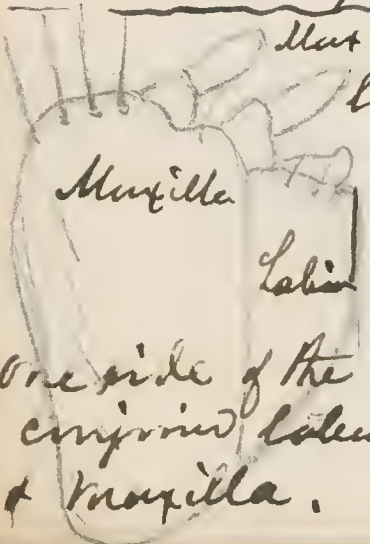 Max
l
Maxilla
Labiu
one side of the
conjoined labiu
& maxilla.